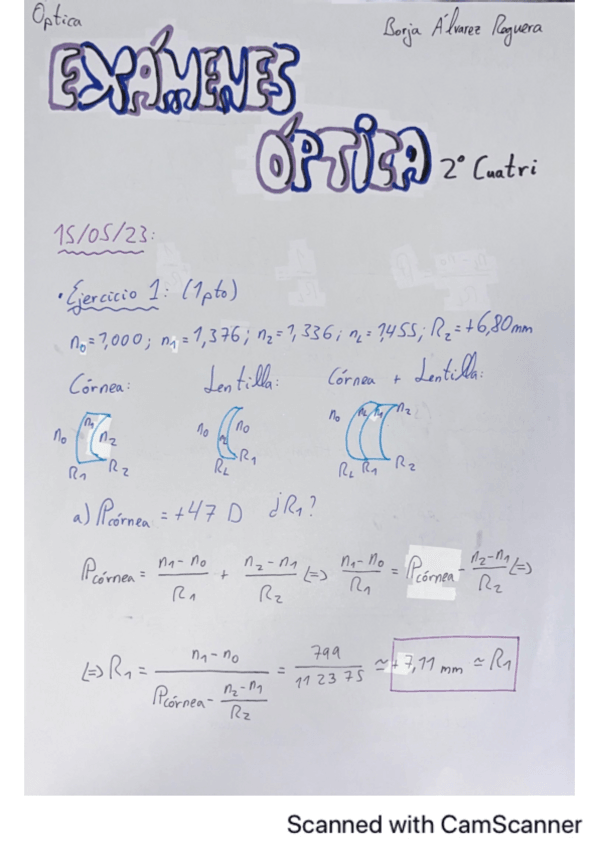 Óptica
Borja Álvarez Raguera
EXÁMENES
ÓPTICA 2º Cuatri
15/05/23:
• Ejercicio 1: (1pto)
n₀=1,000; n₁=1,376; n₂=1,336; n_L=1,455; R₂=+6,80mm
Córnea: Lentilla: Córnea + Lentilla:
n₀ n₁ n₂ R₁ R₂
n₀ n₀ R_L R₁
n₀ n₁ n₂ R_L R₁ R₂
a) Pcórnea = +47 D ¿R₁?
Pcórnea = (n₁-n₀)/R₁ + (n₂-n₁)/R₂ (=) (n₁-n₀)/R₁ = Pcórnea - (n₂-n₁)/R₂ (=)
(=) R₁ = (n₁-n₀)/(Pcórnea - (n₂-n₁)/R₂) = 799/112375 ≃ +7,11 mm ≃ R₁
Scanned with CamScanner